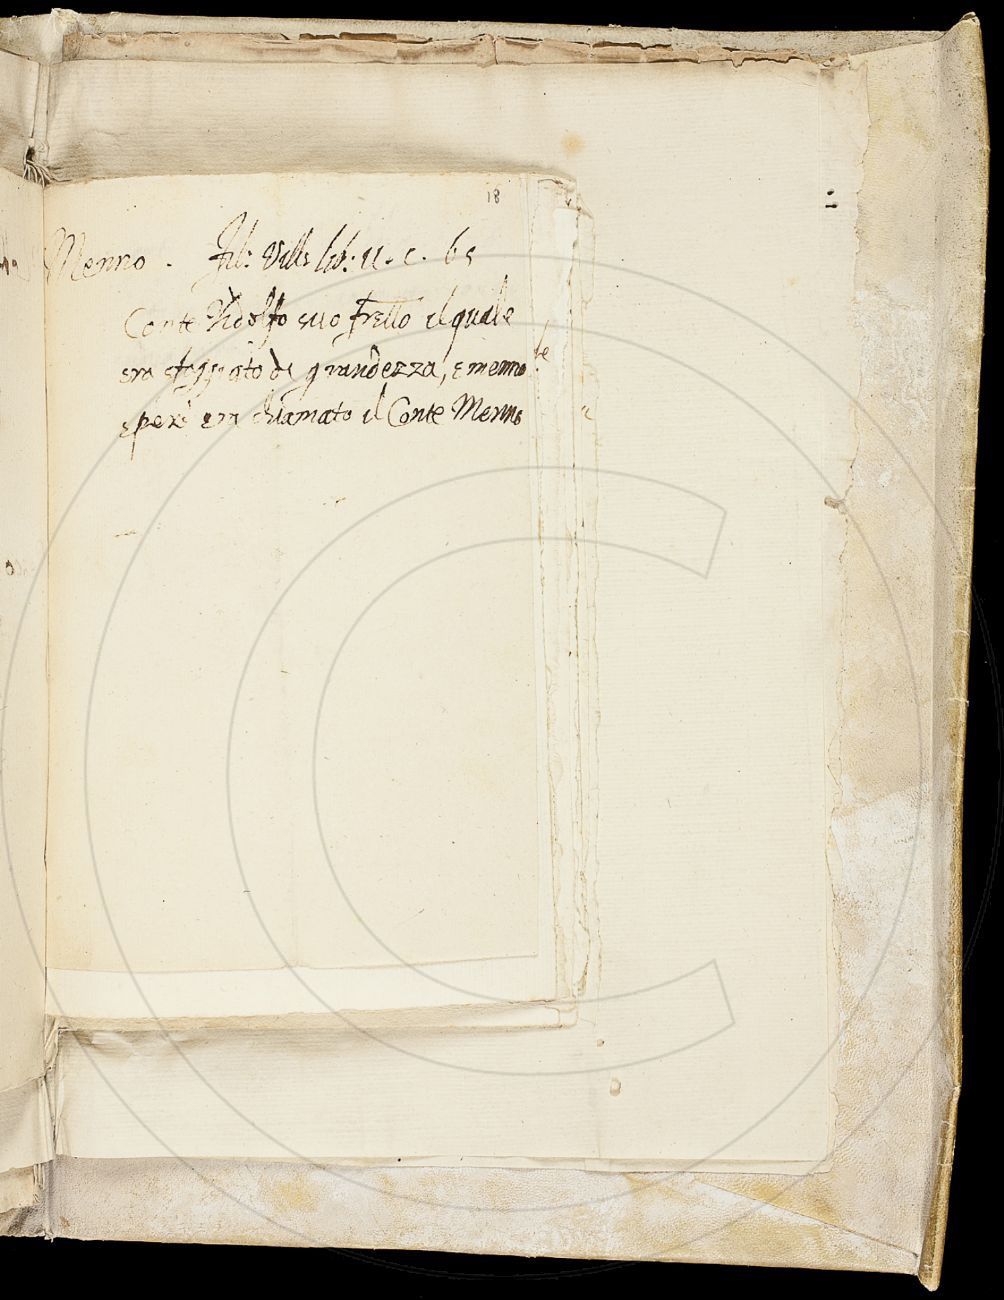 18
Menno. Fil: Vill: lib: 11. c. 65
Conte Ridolfo suo frello il quale
era sfoggiato di grandezza, e menno
e però era chiamato il Conte Menno